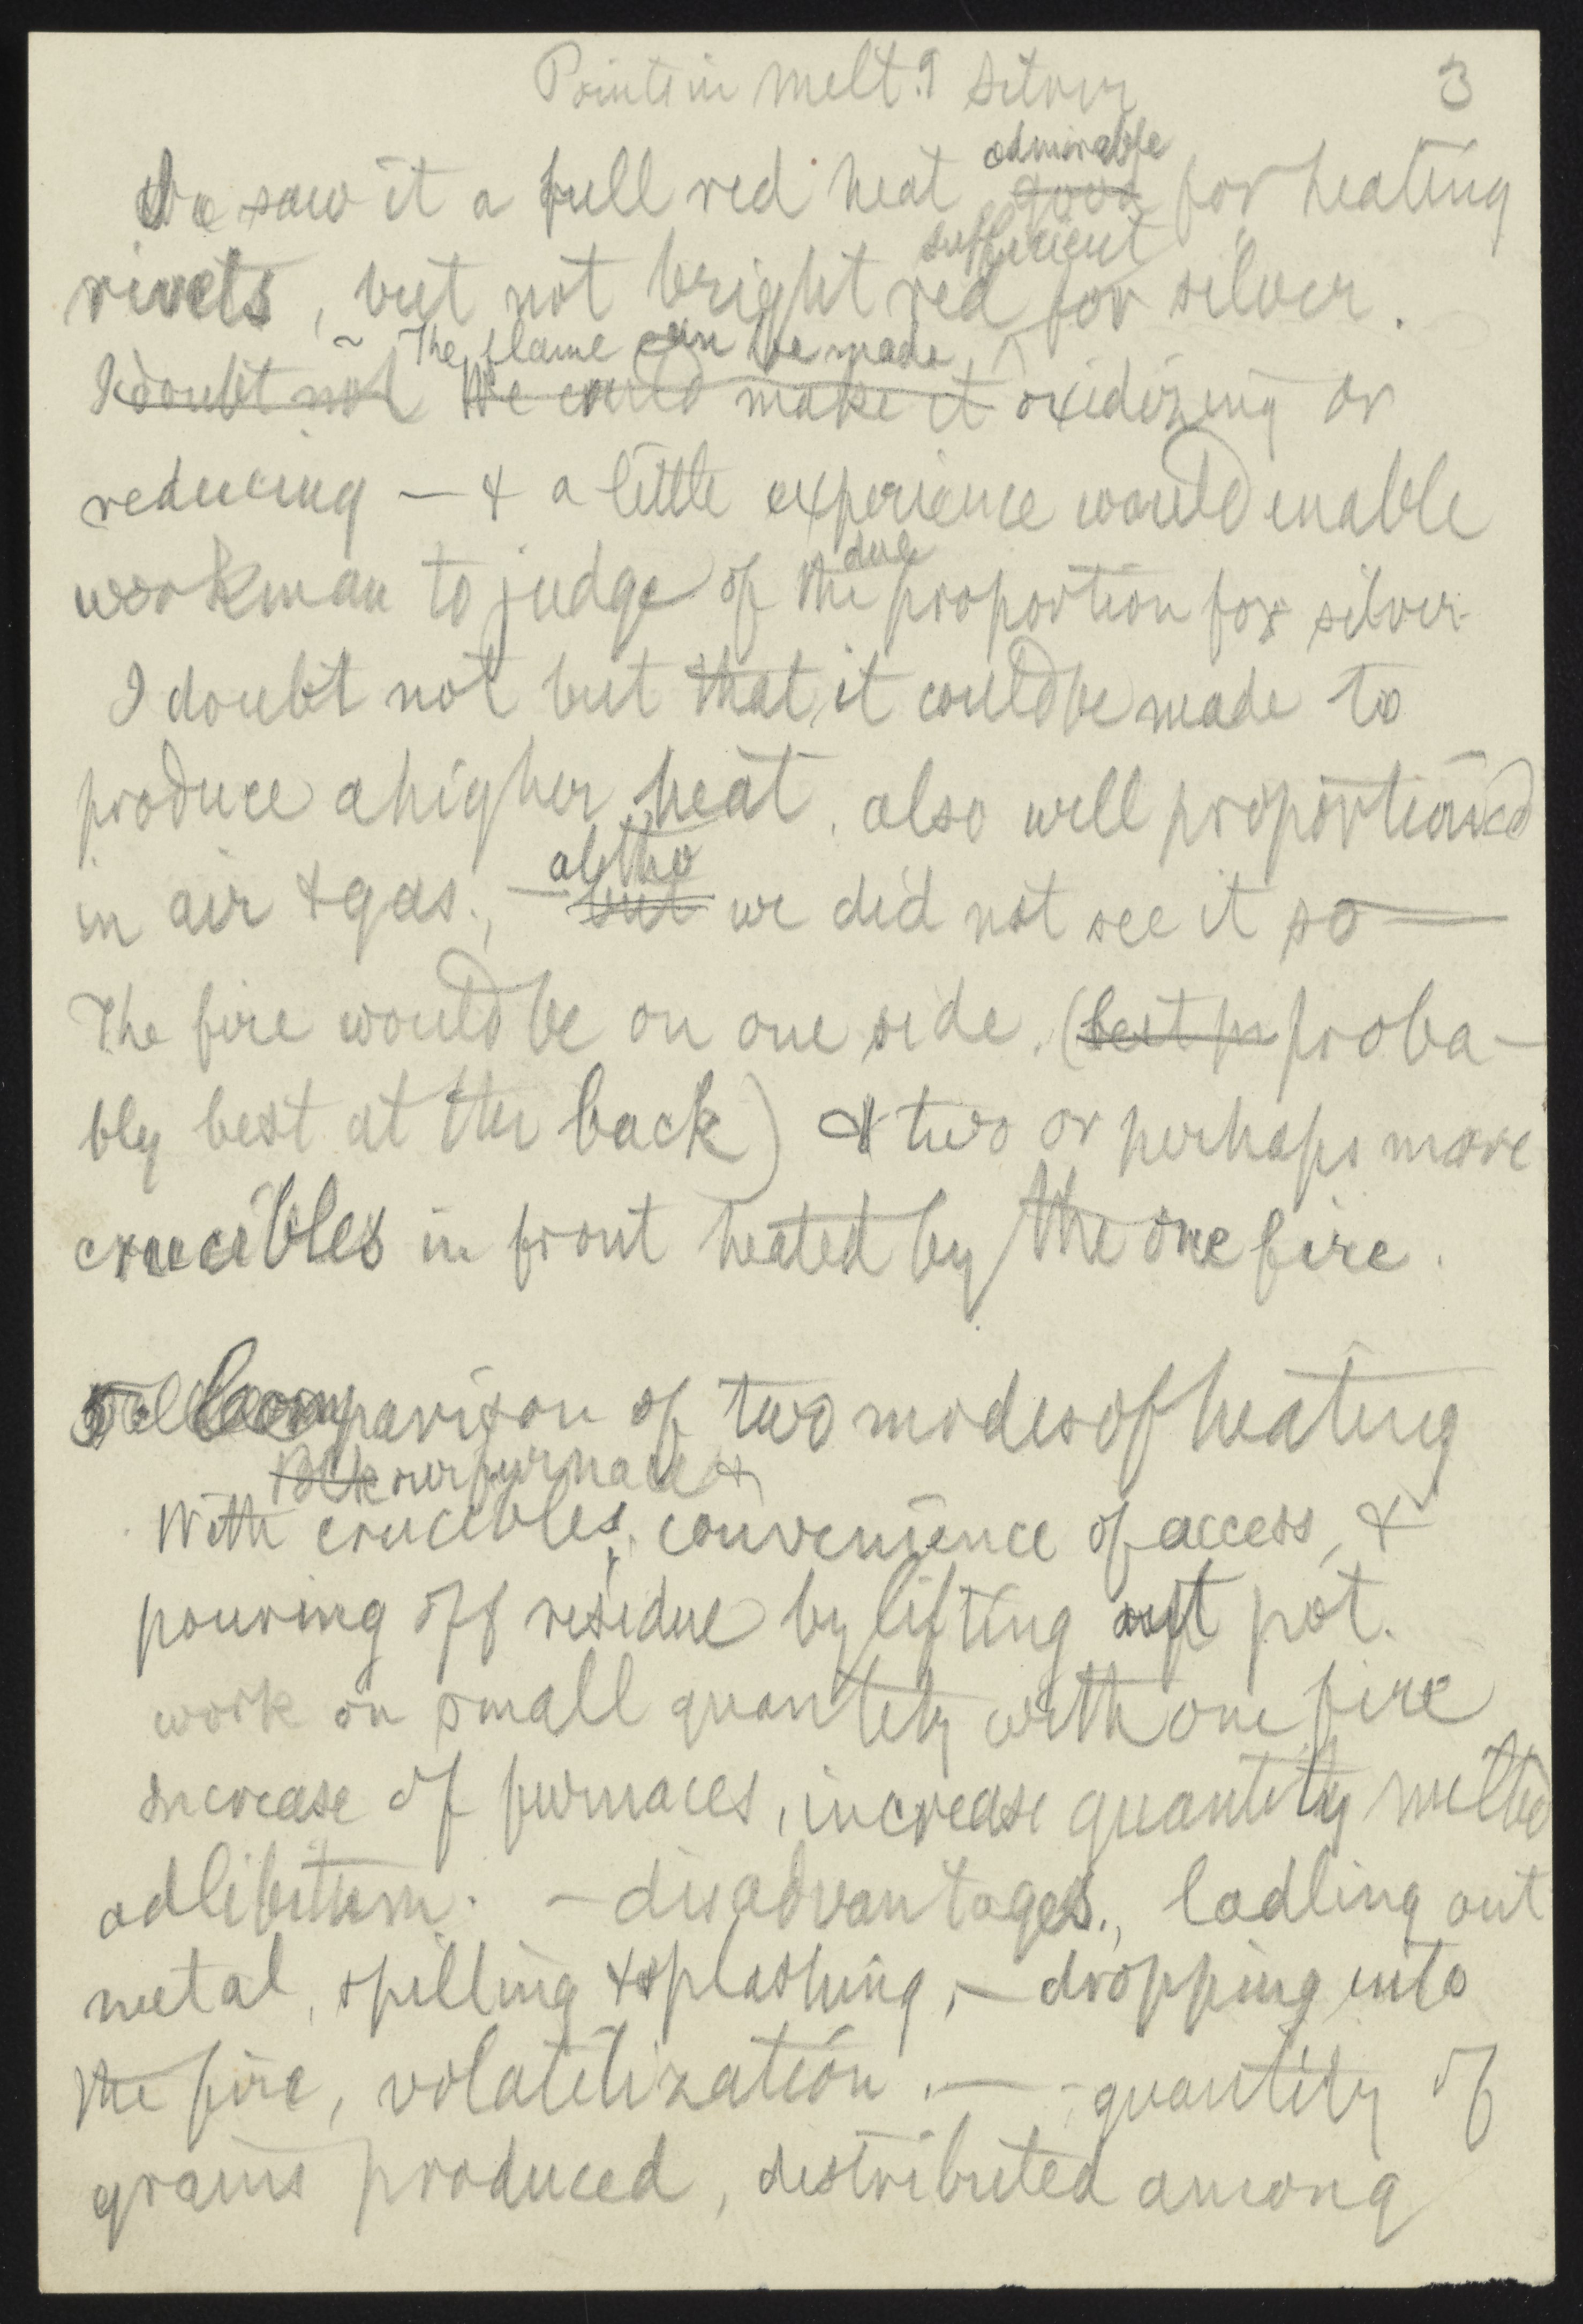 Points in melt.g silver 3
We saw it a full red heat admirable good for heating
rivets, but not bright red sufficient for silver.
I doubt not We could make it The flame can be made oxidizing or
reducing — & a little experience would enable
workman to judge of the due proportion for silver
I doubt not but that it could be made to
produce a higher heat, also well proportioned
in air & gas., — but altho we did not see it so —
The fire would be on one side. (best pr proba-
bly best at the back) & two or perhaps more
crucibles in front heated by the one fire.
Comparison of two modes of heating
With Blk our furnace & crucibles, convenience of access, &
pouring off residue by lifting out pot.
work on small quantity with one fire
increase of furnaces, increase quantity melted
adlibitum. — disadvantages., ladling out
metal, spilling & splashing, — dropping into
the fire, volatilization. — quantity of
grains produced, distributed among